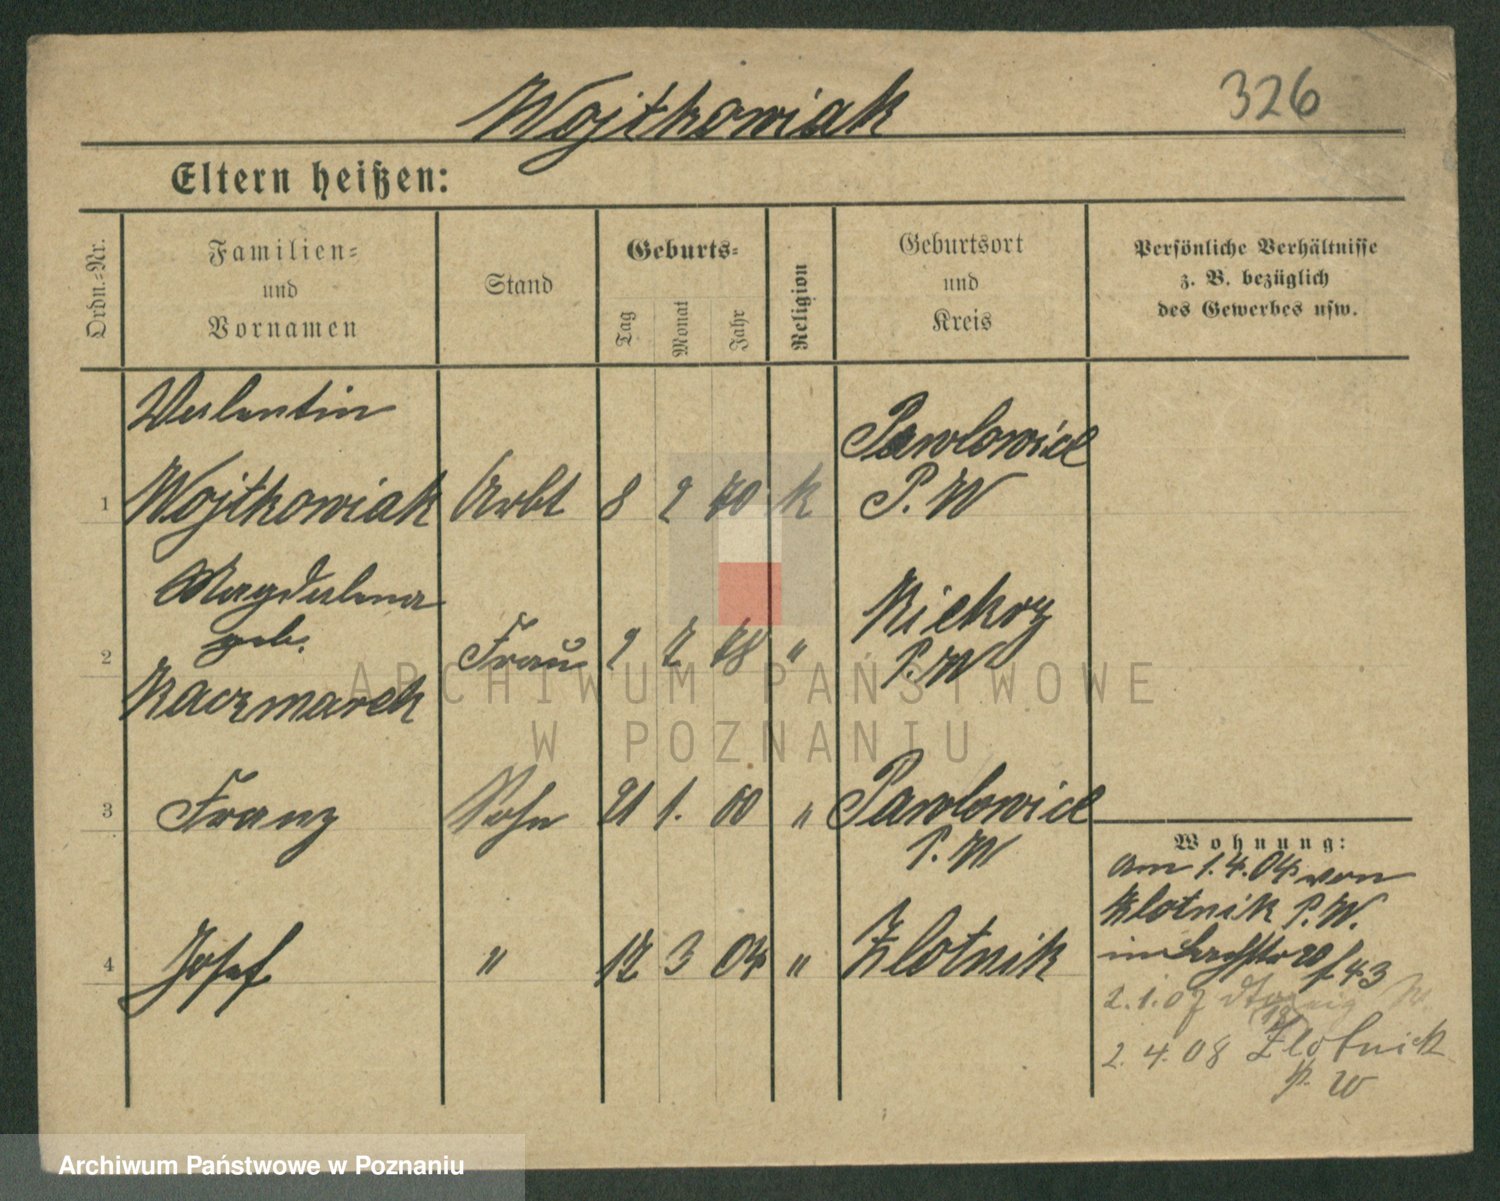 Wojtkowiak
326
Eltern heißen:
Ordn.-Nr.
Familien-
und
Vornamen
Stand
Geburts-
Tag
Monat
Jahr
Religion
Geburtsort
und
Kreis
Persönliche Verhältnisse
z. B. bezüglich
des Gewerbes usw.
Valentin
1 Wojtkowiak Arbt 8 2 70 k Pawlowice
P. W
Magdalena
geb.
2 Kaczmarek Frau 2 7 78 " Kiekrz
P. W
3 Franz Sohn 21 1. 00 " Pawlowice
P. W
4 Josef " 12 3 04 " Zlotnik
Wohnung:
am 1.4.04 von
Zlotnik P. W.
im
43
2.1.07
2.4.08 Zlotnik
P. W
ARCHIWUM PAŃSTWOWE
W POZNANIU
Archiwum Państwowe w Poznaniu